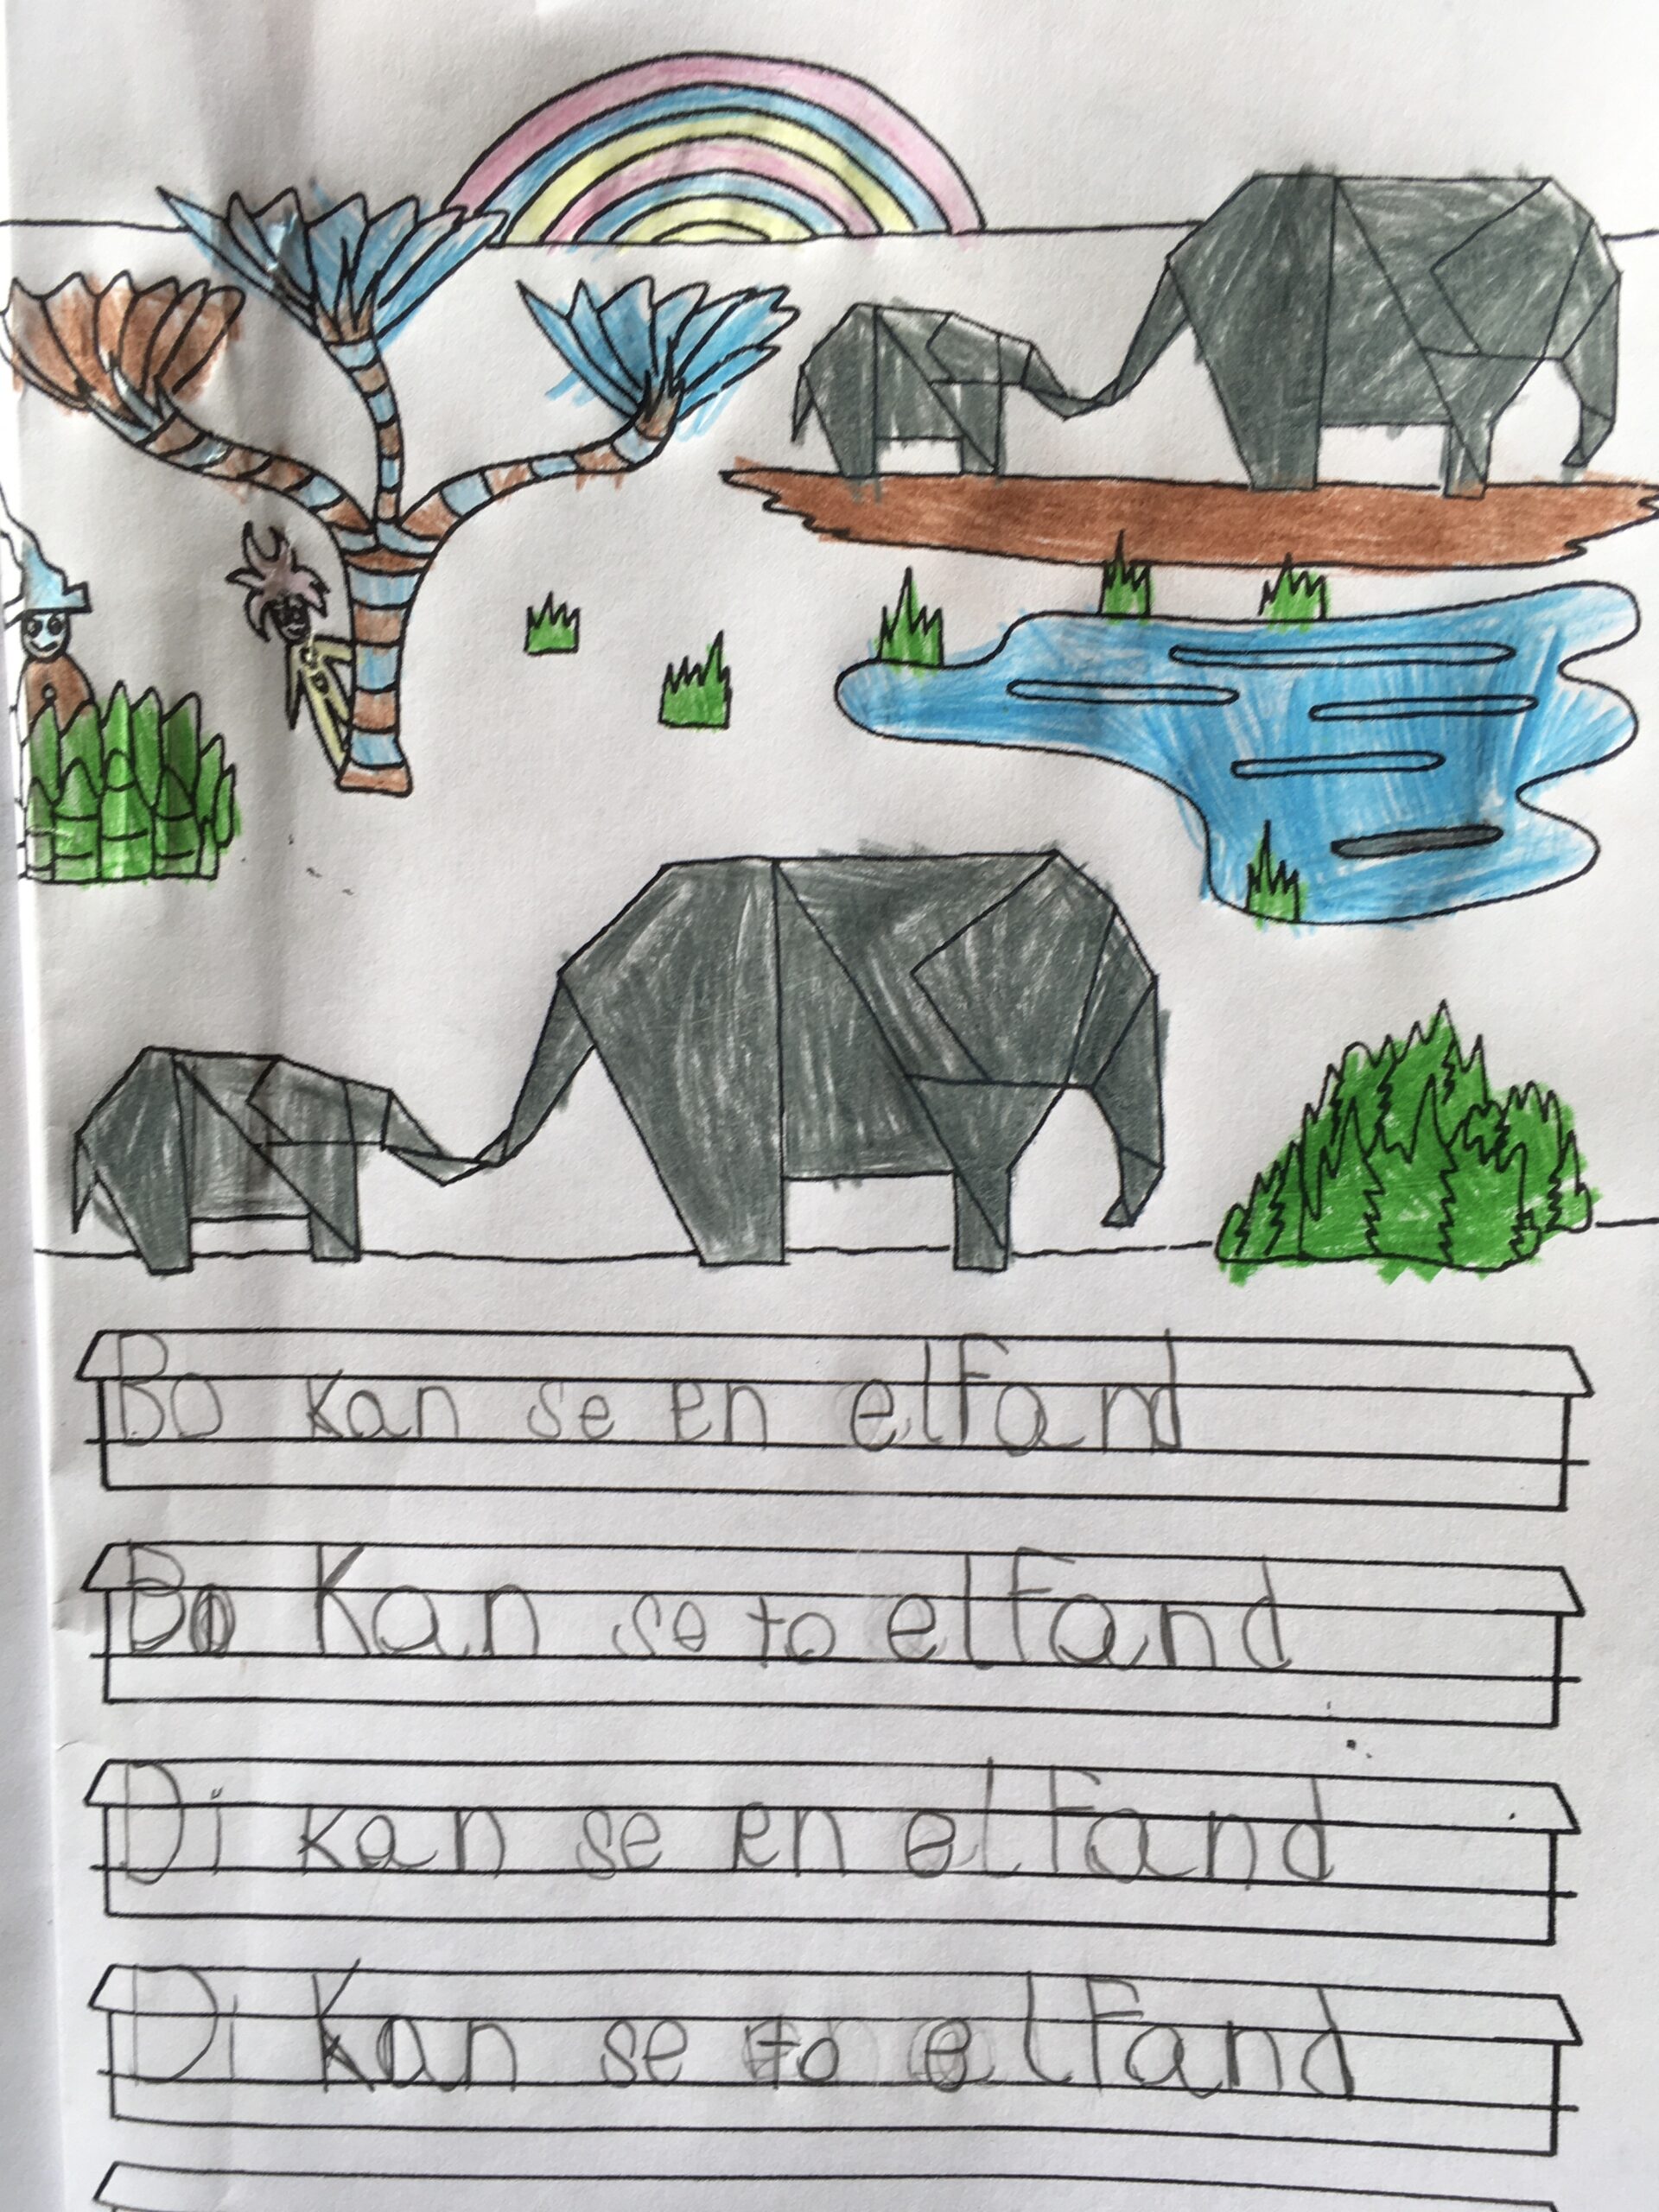 Bo kan se en elfand
Bo Kan se to elfand
Di kan se en elfand
Di Kan se to elfand